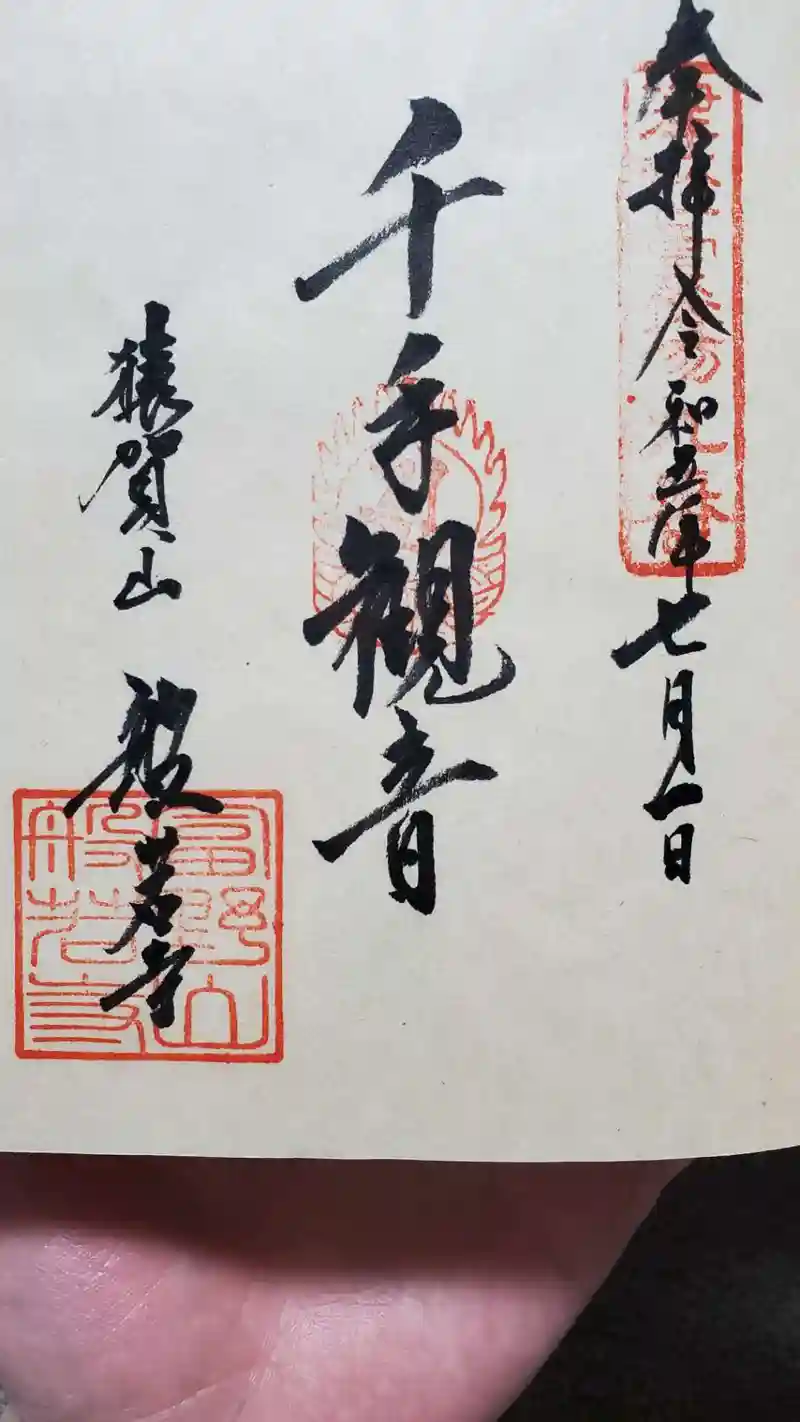 奉拝 令和五年七月一日
千手観音
猿賀山 般若寺
般若寺